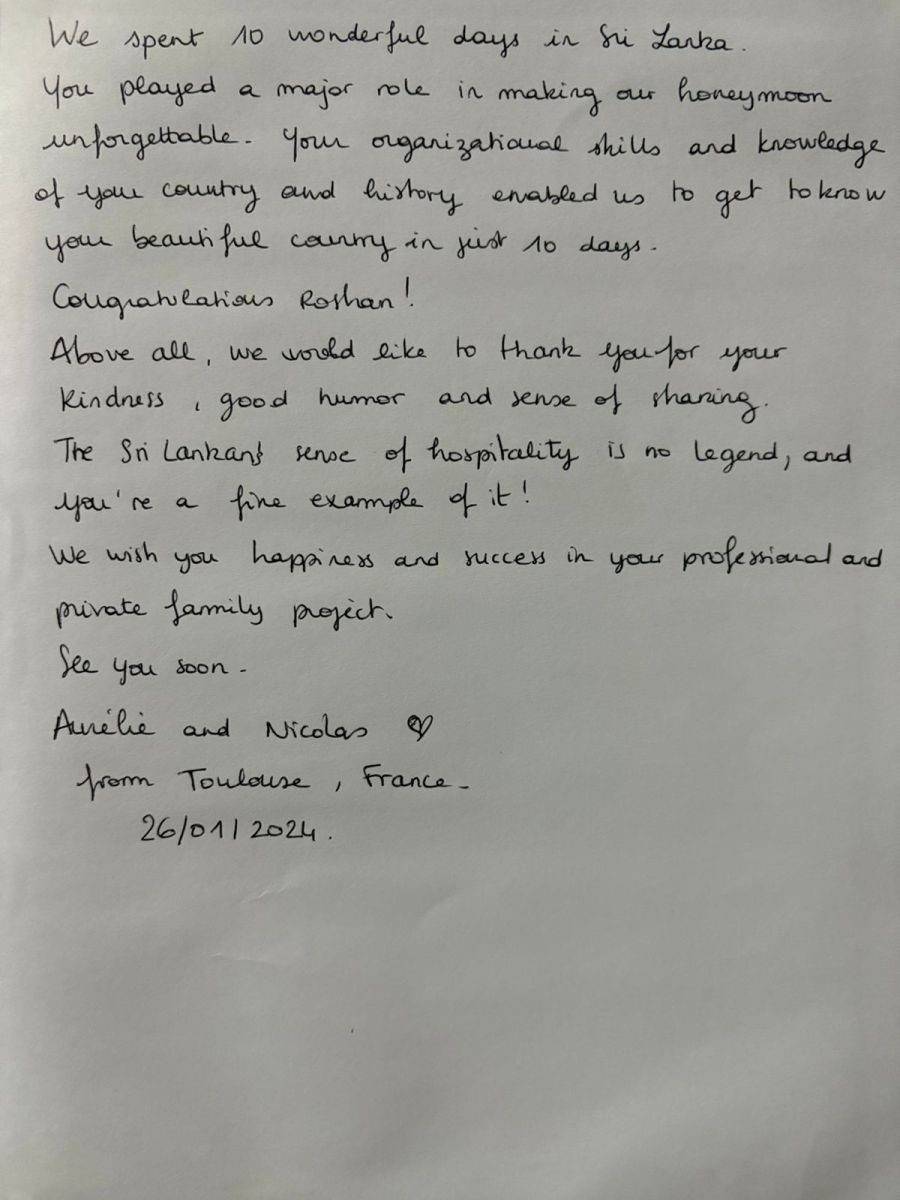 We spent 10 wonderful days in Sri Lanka.
You played a major role in making our honeymoon
unforgettable. Your organizational skills and knowledge
of your country and history enabled us to get to know
your beautiful country in just 10 days.
Congratulations Roshan!
Above all, we would like to thank you for your
kindness, good humor and sense of sharing.
The Sri Lankans sense of hospitality is no legend, and
you're a fine example of it!
We wish you happiness and success in your professional and
private family project.
See you soon -
Aurélie and Nicolas ♡
from Toulouse, France -
26/01/2024.